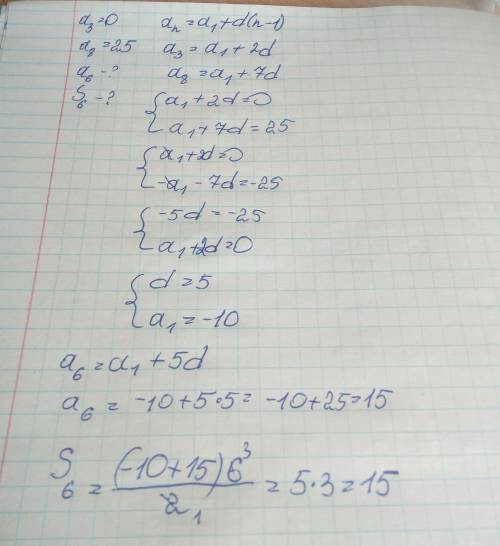 a₃=0 aₙ=a₁+d(n-1)
a₈=25 a₃=a₁+2d
a₆-? a₈=a₁+7d
S₆-? {a₁+2d=0
a₁+7d=25
{a₁+2d=0
-a₁-7d=-25
{-5d=-25
a₁+2d=0
{d=5
a₁=-10
a₆=a₁+5d
a₆=-10+5·5=-10+25=15
S₆=(-10+15)6³/2₁=5·3=15